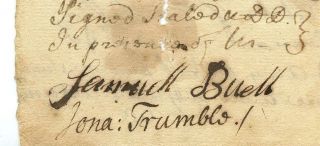 Signed Sealed & DD
In presence of Us
Samuell Buell
Jona: Trumble./